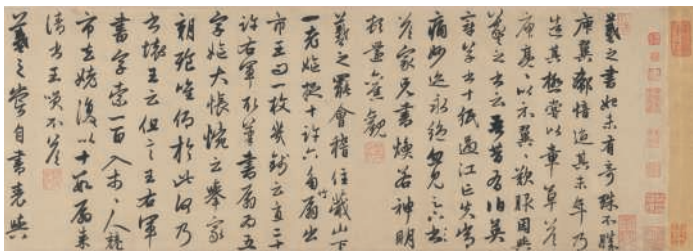 羲之書初未有奇殊不勝
庾翼郗愔迨其末年乃
造其極嘗以章草答
庾亮亮以示翼翼歎服因與
羲之書云吾昔有伯英
章草書十紙過江亡失嘗
痛妙迹永絕忽見足下書
答家兄書煥若神明
頓還舊觀
羲之罷會稽住蕺山下
一老嫗捉十許六角竹扇出
市王問一枚幾錢云直二十
許右軍取筆書扇扇為五
字嫗大悵惋云舉家
朝飧惟仰於此何乃
書壞王云但言王右軍
書字索一百入市市人競
市去姥復以十數扇來
請書王笑不答
羲之嘗自書表與